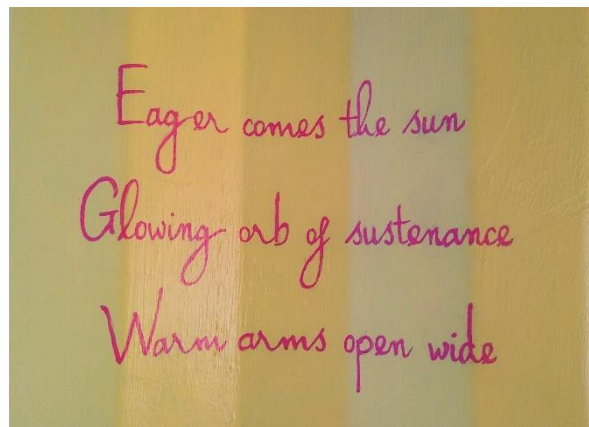 Eager comes the sun
Glowing orb of sustenance
Warm arms open wide